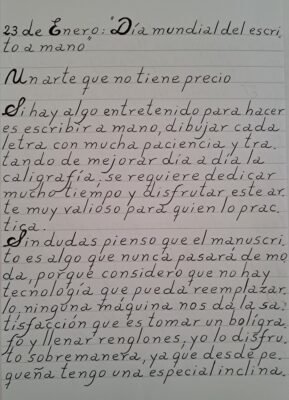 23 de Enero: "Día mundial del escri
to a mano"
Un arte que no tiene precio
Si hay algo entretenido para hacer
es escribir a mano, dibujar cada
letra con mucha paciencia y tra_
tando de mejorar día a día la
caligrafía. Se requiere dedicar
mucho tiempo y disfrutar este ar_
te muy valioso para quien lo prac_
tica.
Sin dudas pienso que el manuscri_
to es algo que nunca pasará de mo_
da, porque considero que no hay
tecnología que pueda reemplazar_
lo, ninguna máquina nos da la sa_
tisfacción que es tomar un bolígra_
fo y llenar renglones, yo lo disfru_
to sobremanera, ya que desde pe_
queña tengo una especial inclina_